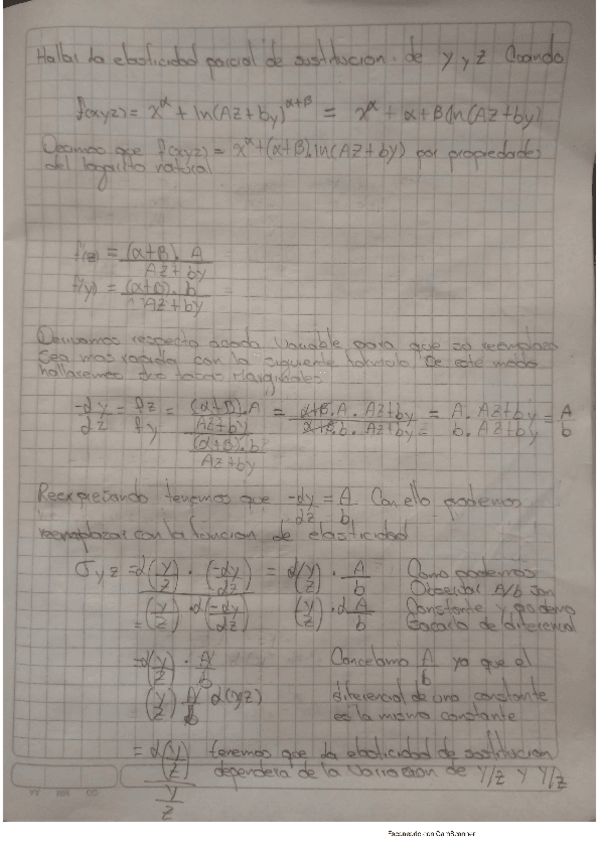 Hallar la elasticidad parcial de sustitucion de y y z Cuando
f(xyz) = x^α + ln(Az+by)^(α+β) = x^α + α+β(ln(Az+by)
Decimos que f(xyz) = x^α + (α+β).ln(Az+by) por propiedades
del logaritmo natural
f(z) = (α+β). A / Az+by
f(y) = (α+β). b / Az+by
Derivamos respecto acada Variable para que su reemplazo
Sea mas rapida con la siguiente formula De este modo
hallaremos las tasas Marginales
-dy/dz = fz/fy = ((α+β).A / Az+by) / ((α+β).b / Az+by) = α+β.A.Az+by / α+β.b.Az+by = A.Az+by / b.Az+by = A/b
Reexpresando tenemos que -dy/dz = A/b Con ello podemos
reemplazar con la funcion de elasticidad
σyz = d(y/z).(-dy/dz) / (y/z).d(-dy/dz) = d(y/z).A/b / (y/z).d A/b
Como podemos
Observar A/b son
Constante y podemo
Sacarla de diferencial
= d(y/z).A/b / (y/z) A/b d(yz)
Cancelamo A/b ya que el
diferencial de una constante
es la misma constante
= d(y/z) / y/z tenemos que la elasticidad de sustitucion
dependera de la Variacion de Y/z y Y/z
Escaneado con CamScanner